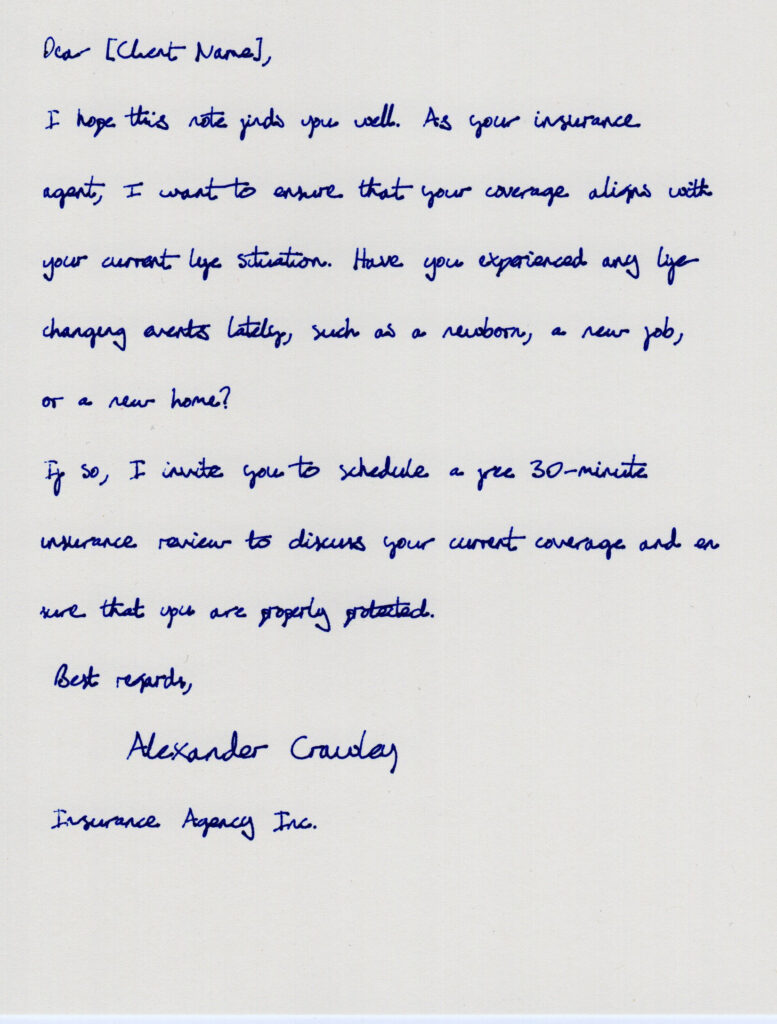 Dear [Client Name],
I hope this note finds you well. As your insurance
agent, I want to ensure that your coverage aligns with
your current life situation. Have you experienced any life
changing events lately, such as a newborn, a new job,
or a new home?
If so, I invite you to schedule a free 30-minute
insurance review to discuss your current coverage and en
sure that you are properly protected.
Best regards,
Alexander Crawley
Insurance Agency Inc.